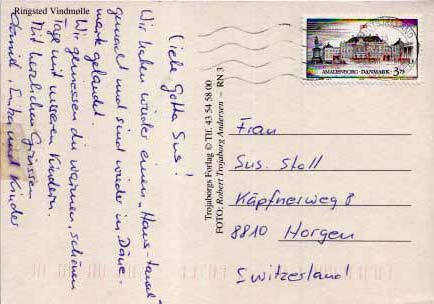 Ringsted Vindmølle
Liebe Gotta Sus!
Wir haben wieder einen „Haus-tausch"
gemacht und sind wieder in Däne-
mark gelandet.
Wir geniessen die warmen, schönen
Tage mit unseren Kindern.
Mit herzlichen Grüssen
und Kinder
Trojaborgs Forlag © Tlf. 43 54 58 00
FOTO: Robert Trojaborg Andersen – RN 3
AMALIENBORG · DANMARK · 3.75
Frau
Sus. Stoll
Käpfnerweg 8
8810 Horgen
Switzerland